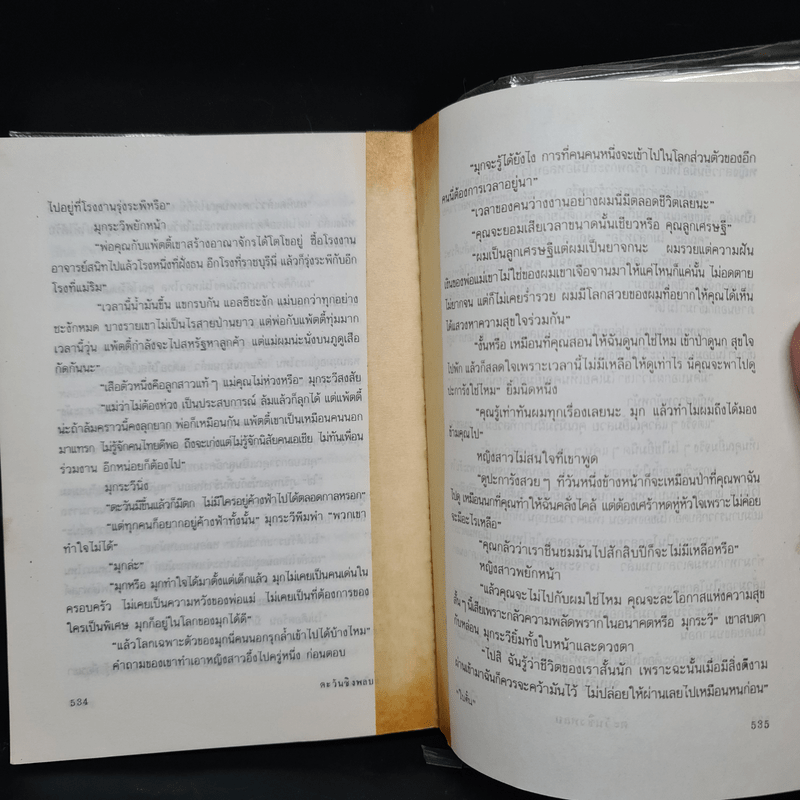 ไปอยู่ที่โรงงานรุ่งระพีหรือ”
มุกระวีพยักหน้า
“พ่อคุณกับแพ้ตตี้เขาสร้างอาณาจักรได้โตไขอยู่ ซื้อโรงงาน
อาจารย์สนิทไปแล้วโรงหนึ่งที่ฝั่งธน อีกโรงที่ราชบุรีนี่ แล้วก็รุ่งระพีกับอีก
โรงที่แม่ริม”
“เวลานี้น้ำมันขึ้น แขกรบกัน แอลซีชะงัก แม่บอกว่าทุกอย่าง
ชะงักหมด บางรายเขาไม่เป็นไรสายป่านยาว แต่พ่อกับแพ้ตตี้ทุ่มมาก
เวลานี้วุ่น แพ้ตตี้กำลังจะไปสหรัฐหาลูกค้า แต่แม่ผมน่ะนั่งบนภูดูเสือ
กัดกันนะ”
“เสือตัวหนึ่งคือลูกสาวแท้ๆ แม่คุณไม่ห่วงหรือ” มุกระวีสงสัย
“แม่ว่าไม่ต้องห่วง เป็นประสบการณ์ ล้มแล้วก็ลุกได้ แต่แพ้ตตี้
น่ะถ้าล้มคราวนี้คงลุกยาก พ่อก็เหมือนกัน แพ้ตตี้เขาเป็นเหมือนคนนอก
มาแทรก ไม่รู้จักคนไทยดีพอ ถึงจะเก่งแต่ไม่รู้จักนิสัยคนเอเชีย ไม่ทันเพื่อน
ร่วมงาน อีกหน่อยก็ต้องไป”
มุกระวีนิ่ง
“ตะวันมีขึ้นแล้วก็มีตก ไม่มีใครอยู่ค้างฟ้าไปได้ตลอดกาลหรอก”
“แต่ทุกคนก็อยากอยู่ค้างฟ้าทั้งนั้น” มุกระวีพึมพำ “พวกเขา
ทำใจไม่ได้”
“มุกล่ะ”
“มุกหรือ มุกทำใจได้มาตั้งแต่เด็กแล้ว มุกไม่เคยเป็นคนเด่นใน
ครอบครัว ไม่เคยเป็นความหวังของพ่อแม่ ไม่เคยเป็นที่ต้องการของ
ใครเป็นพิเศษ มุกก็อยู่ในโลกของมุกได้ดี”
“แล้วโลกเฉพาะตัวของมุกนี่คนนอกรุกล้ำเข้าไปได้บ้างไหม”
คำถามของเขาทำเอาหญิงสาวอึ้งไปครู่หนึ่ง ก่อนตอบ
ตะวันชิงพลบ
534
“มุกจะรู้ได้ยังไง การที่คนคนหนึ่งจะเข้าไปในโลกส่วนตัวของอีก
คนนี่ต้องการเวลาอยู่นา”
“เวลาของคนว่างงานอย่างผมนี่มีตลอดชีวิตเลยนะ”
“คุณจะยอมเสียเวลาขนาดนั้นเชียวหรือ คุณลูกเศรษฐี”
“ผมเป็นลูกเศรษฐีแต่ผมเป็นยาจกนะ ผมรวยแต่ความฝัน
เงินของพ่อแม่เขาไม่ใช่ของผมเขาเจือจานมาให้แค่ไหนก็แค่นั้น ไม่อดตาย
ไม่ยากจน แต่ก็ไม่เคยร่ำรวย ผมมีโลกสวยของผมที่อยากให้คุณได้เห็น
ได้แสวงหาความสุขใจร่วมกัน”
“งั้นหรือ เหมือนที่คุณสอนให้ฉันดูนกใช่ไหม เข้าป่าดูนก สุขใจ
ไปพัก แล้วก็สลดใจเพราะเวลานี้ไม่มีเหลือให้ดูเท่าไร นี่คุณจะพาไปดู
ปะการังใช่ไหม” ยิ้มนิดหนึ่ง
“คุณรู้เท่าทันผมทุกเรื่องเลยนะ มุก แล้วทำไมผมถึงได้มอง
ข้ามคุณไป”
หญิงสาวไม่สนใจที่เขาพูด
“ดูปะการังสวยๆ ที่วันหนึ่งข้างหน้าก็จะเหมือนป่าที่คุณพาฉัน
ไปดู เหมือนนกที่คุณทำให้ฉันคลั่งไคล้ แต่ต้องเศร้าหดหู่หัวใจเพราะไม่ค่อย
จะมีอะไรเหลือ”
“คุณกลัวว่าเราชื่นชมมันไปสักสิบปีก็จะไม่มีเหลือหรือ”
หญิงสาวพยักหน้า
“แล้วคุณจะไม่ไปกับผมใช่ไหม คุณจะละโอกาสแห่งความสุข
สั้นๆ นี่เสียเพราะกลัวความพลัดพรากในอนาคตหรือ มุกระวี” เขาสบตา
กับหล่อน มุกระวียิ้มทั้งใบหน้าและดวงตา
“ไปสิ ฉันรู้ว่าชีวิตของเราสั้นนัก เพราะฉะนั้นเมื่อมีสิ่งดีงาม
ผ่านเข้ามาฉันก็ควรจะคว้ามันไว้ ไม่ปล่อยให้ผ่านเลยไปเหมือนหนก่อน”
535